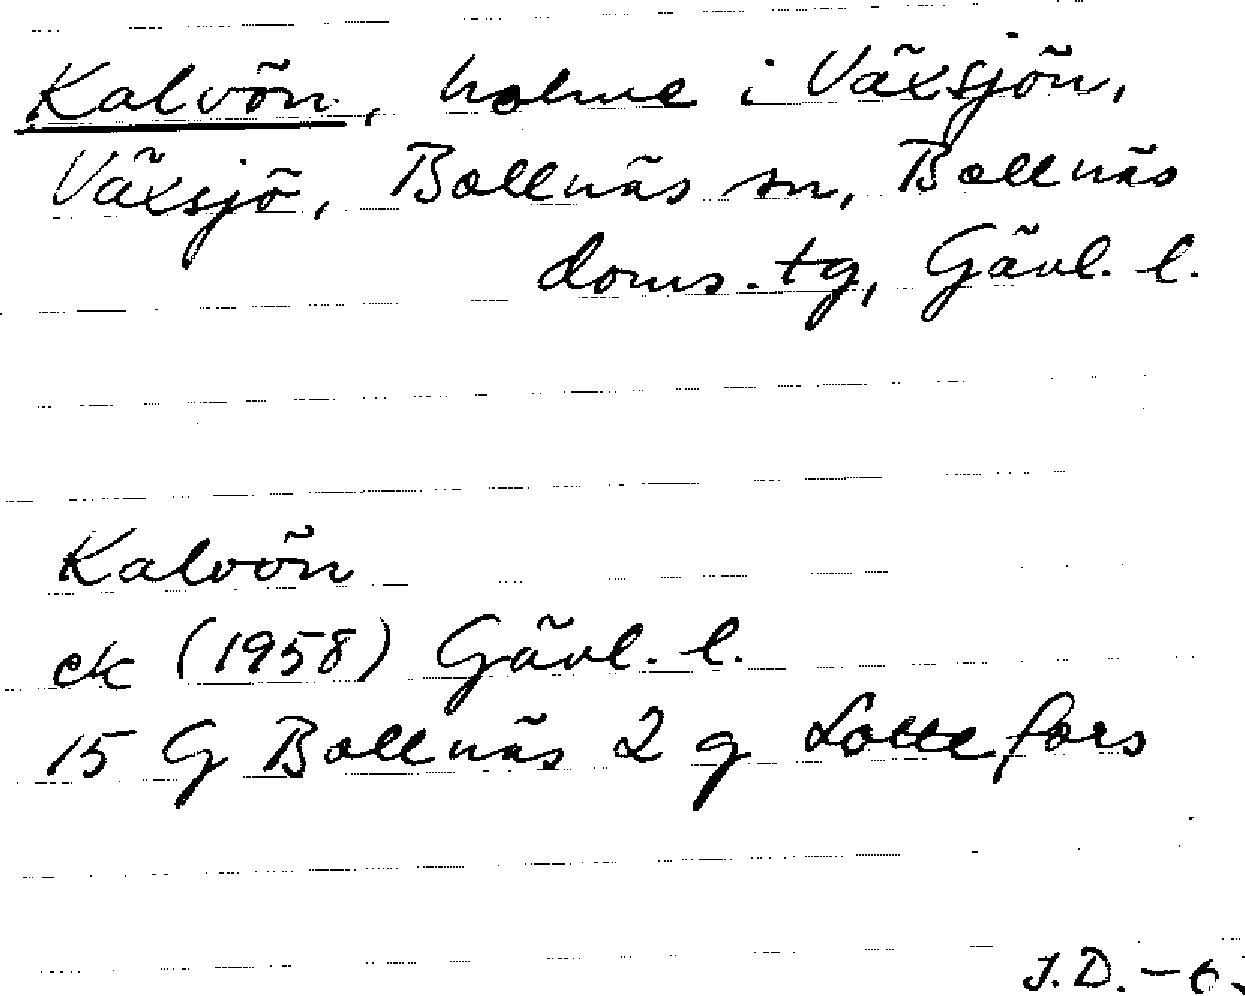 Kalvön, holme i Växsjön,
Växsjö, Bollnäs sn, Bollnäs
doms.tg, Gävl. l.
Kalvön
ek (1958) Gävl. l.
15 G Bollnäs 2 g Lottefors
J.D. - 6